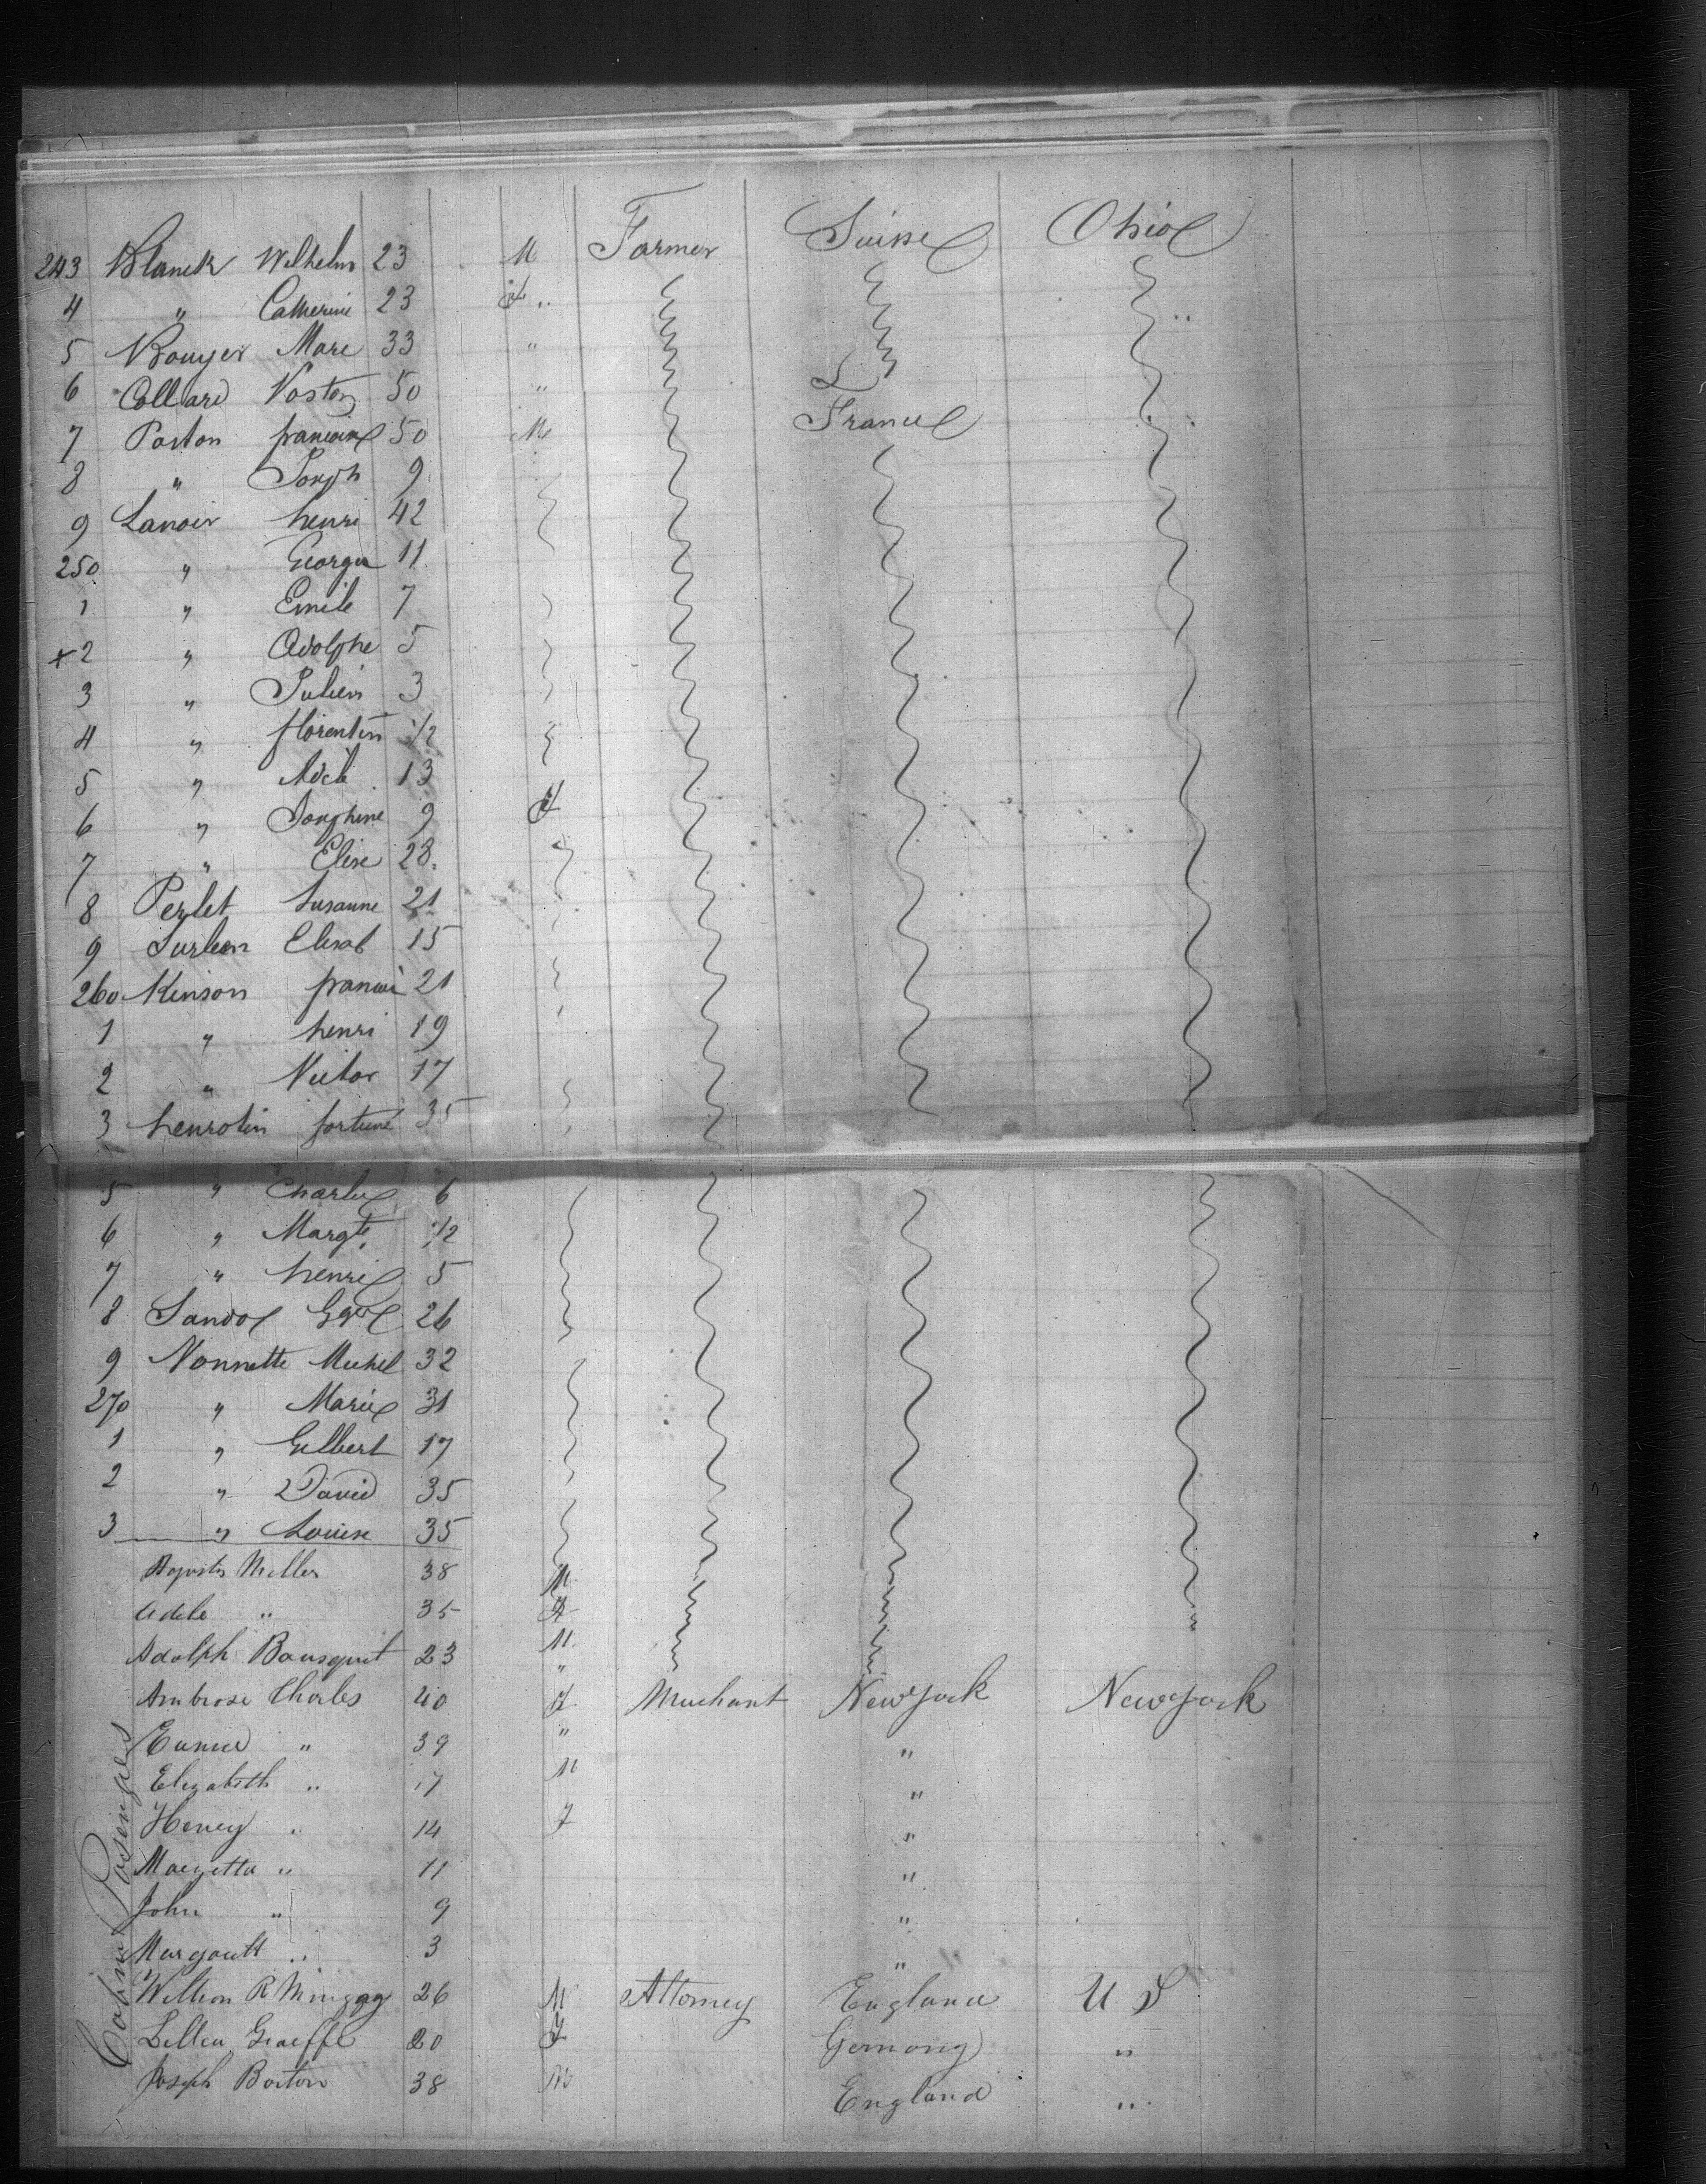 243 Blanck Wilhelm 23 M Farmer Suisse Ohio
4 " Catherine 23 F "
5 Bouyer Marc 33 "
6 Collard 50 "
7 Porton 50 M France
8 " Joseph 9
9 Lanoir henri 42
250 " George 11
1 " Emile 7
+2 " Adolphe 5
3 " Julien 3
4 " florentin 1/2
5 " Adele 13
6 " Josephine 9 F
7 " Elise 28
8 Perlet Susanne 21
9 Elisab 15
260 Kinson francois 21
1 " henri 19
2 " Victor 17
3 henrotin fortuné 35
5 " Charles 6
6 " Margte 1/2
7 " henri 5
8 Sandoz 26
9 Nonnette Michel 32
270 " Marie 31
1 " Gilbert 17
2 " David 35
3 " Louise 35
Cabin Passenges
Agustes Miller 38 M
Adele " 35 F
Adolph Bousquet 23 M
Ambrose Charles 40 " Merchant New York New York
Eunice " 39 F "
Elizabeth " 17 " "
Henry " 14 M "
Marietta " 11 F "
John " 9 "
Margarett " 3 "
William R 26 M Attorney England U S
Graeffe 20 F Germany "
Joseph Borton 38 M England "